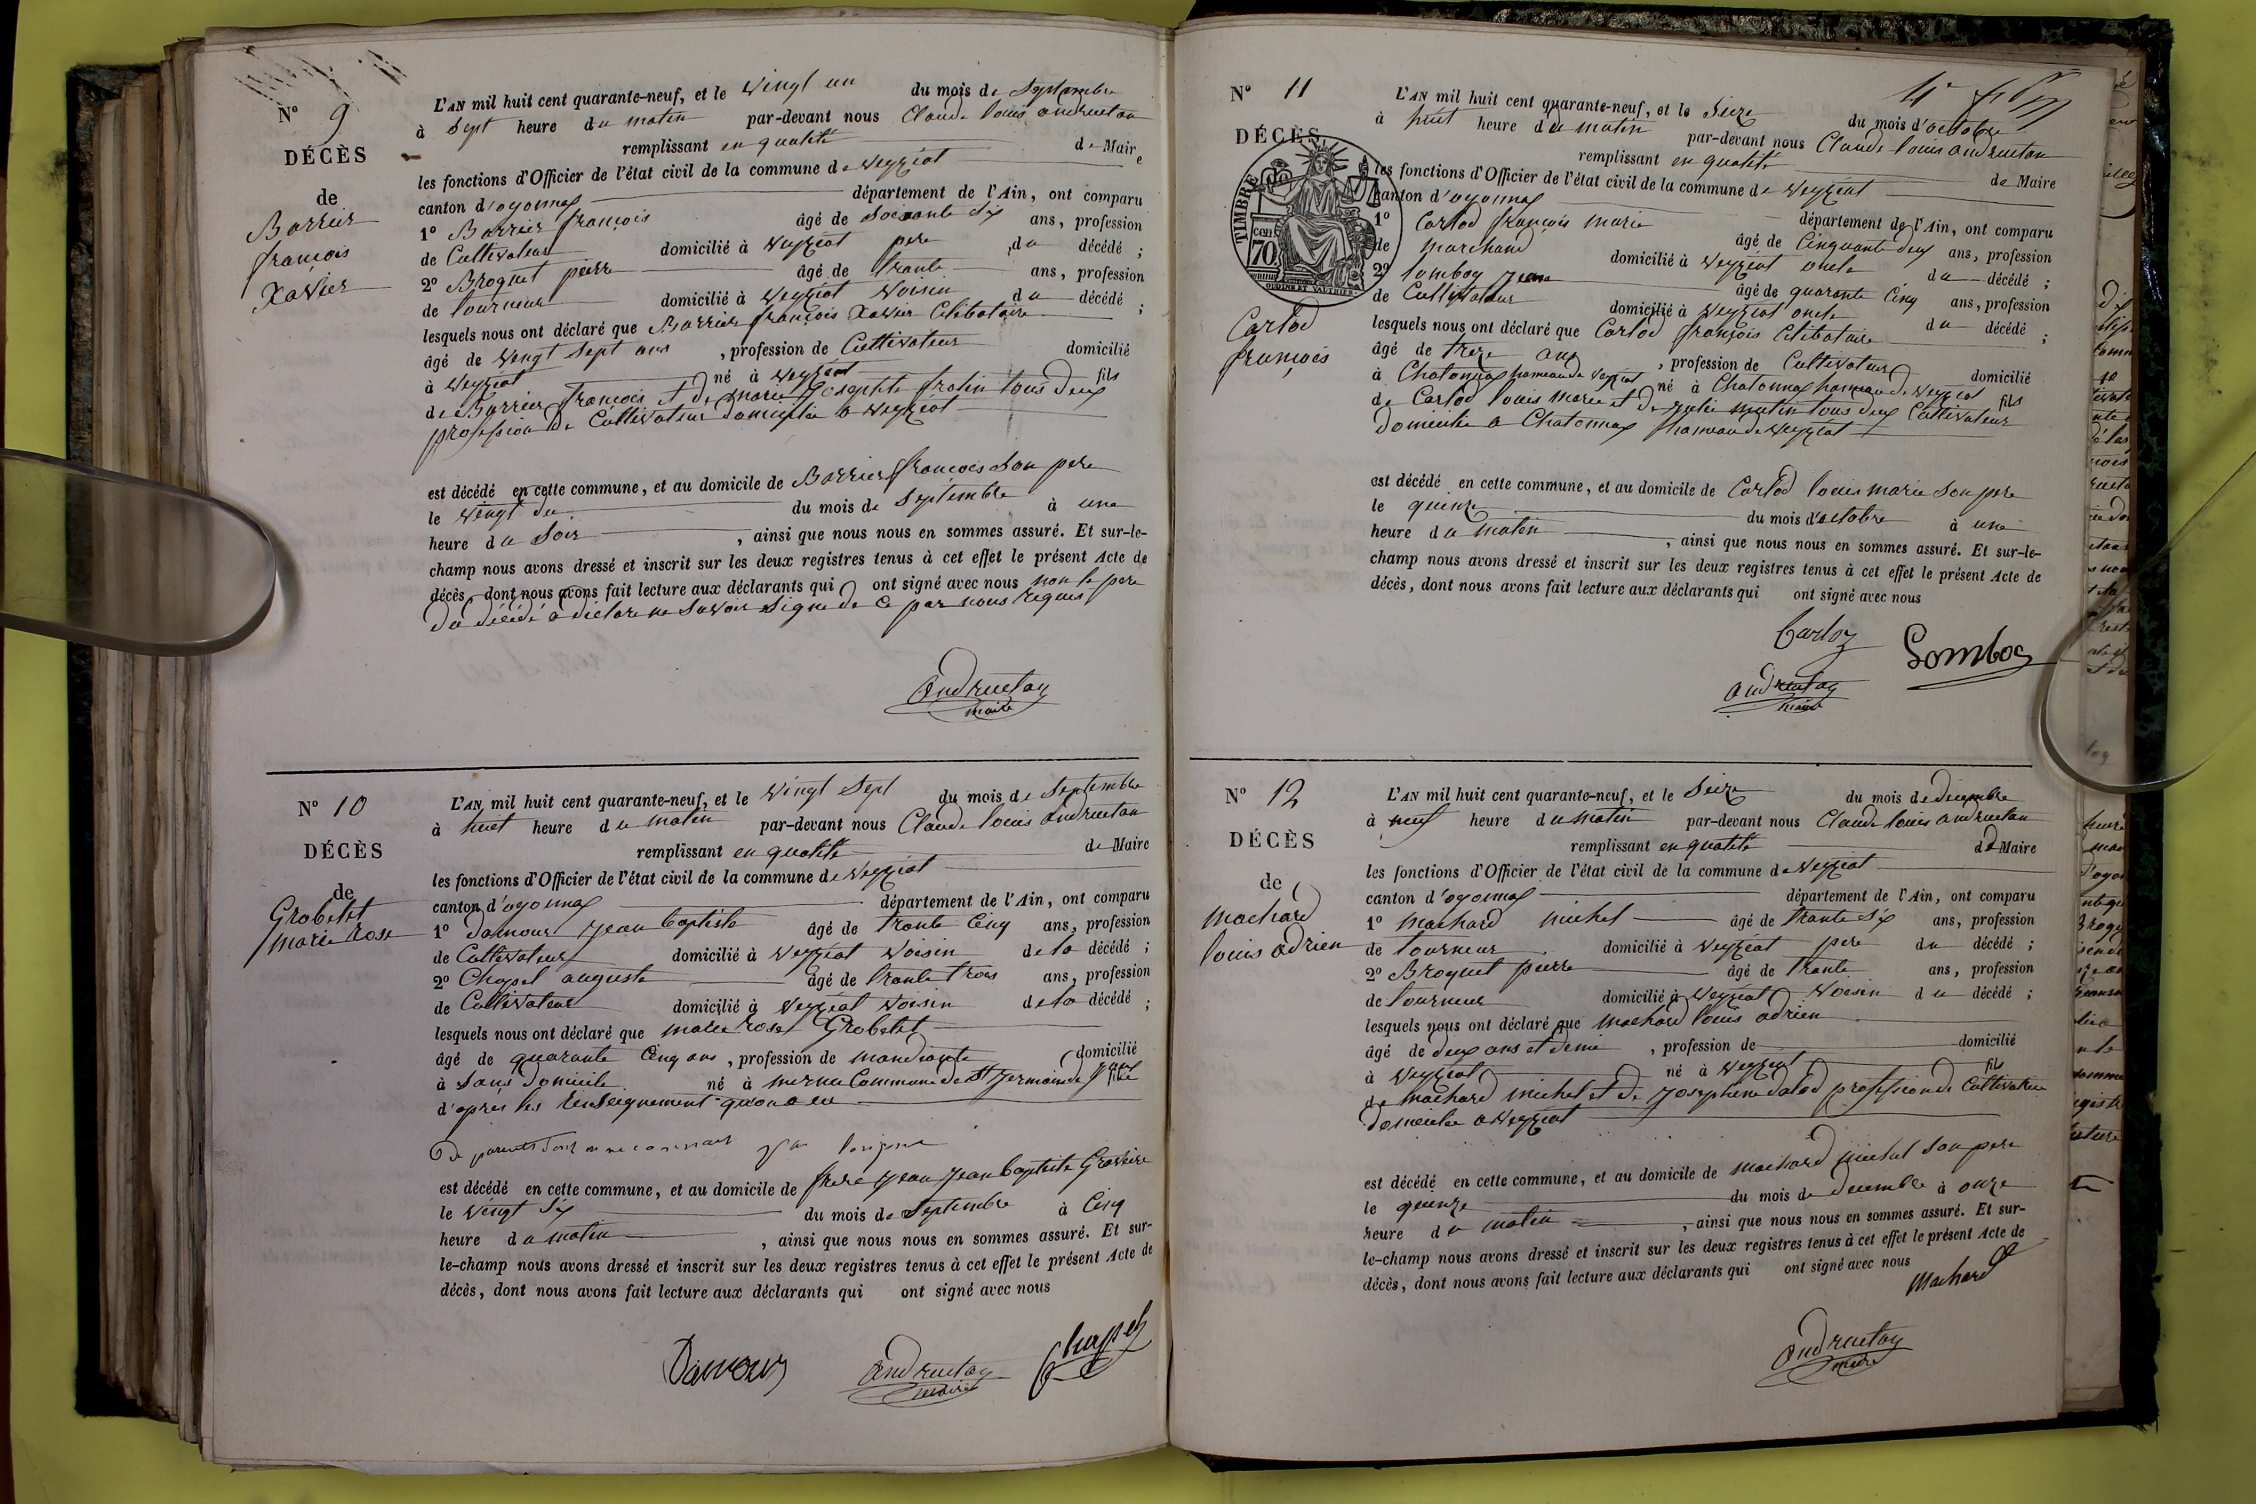 N° 9
DÉCÈS
de
Barrier
françois
Xavier
L'AN mil huit cent quarante-neuf, et le vingt un du mois de Septembre
à Sept heure du matin par-devant nous Claude louis andruetan
remplissant en qualité de Maire
les fonctions d'Officier de l'état civil de la commune de veyziat
canton d'oyonnax département de l'Ain, ont comparu
1° Barrier françois âgé de Soixante Six ans, profession
de Cultivateur domicilié à veyziat pere du décédé ;
2° Broquet pierre âgé de trante ans, profession
de tourneur domicilié à veyziat voisin du décédé ;
lesquels nous ont déclaré que Barrier françois Xavier Célibataire
âgé de vengt Sept ans , profession de Cultivateur domicilié
à veyziat né à veyziat fils
de Barrier françois et de marie Josephte tous deux
profession de Cultivateur domicilié a veyziat
est décédé en cette commune, et au domicile de Barrier françois Son pere
le vengt du mois de Septembre à une
heure du Soir , ainsi que nous nous en sommes assuré. Et sur-le-
champ nous avons dressé et inscrit sur les deux registres tenus à cet effet le présent Acte de
décès, dont nous avons fait lecture aux déclarants qui ont signé avec nous non le pere
du décédé a déclare ne Savoir Signe de ce par nous requis
andruetan
maire
N° 10
DÉCÈS
de
Grobelet
marie rose
L'AN mil huit cent quarante-neuf, et le vingt Sept du mois de Septembre
à huit heure du matin par-devant nous Claude louis andruetan
remplissant en qualité de Maire
les fonctions d'Officier de l'état civil de la commune de veyziat
canton d'oyonnax département de l'Ain, ont comparu
1° Damour jean baptiste âgé de trante Cinq ans, profession
de Cultivateur domicilié à veyziat voisin de la décédé ;
2° Chapel auguste âgé de trante trois ans, profession
de Cultivateur domicilié à veyziat voisin de la décédé ;
lesquels nous ont déclaré que marie rose Grobelet
âgé de quarante Cinq ans , profession de mandiante domicilié
à Sans Domicile né à Commune de St germain de joux fille
d'après les renseignement qu'on a eu
De parents dont on ne connait pas l'origine
est décédé en cette commune, et au domicile de jean baptiste
le vengt Six du mois de Septembre à Cinq
heure du matin , ainsi que nous nous en sommes assuré. Et sur-
le-champ nous avons dressé et inscrit sur les deux registres tenus à cet effet le présent Acte de
décès, dont nous avons fait lecture aux déclarants qui ont signé avec nous
Damour andruetan Chappel
maire
N° 11
DÉCÈS
de
TIMBRE
cen 70
Carlod
françois
L'AN mil huit cent quarante-neuf, et le Seize du mois d'octobre
à huit heure du matin par-devant nous Claude louis andruetan
remplissant en qualité de Maire
les fonctions d'Officier de l'état civil de la commune de veyziat
canton d'oyonnax département de l'Ain, ont comparu
1° Carlod françois marie âgé de Cinquante deux ans, profession
de marchand domicilié à veyziat oncle du décédé ;
2° Lomboz jean âgé de quarante Cinq ans, profession
de Cultivateur domicilié à veyziat oncle du décédé ;
lesquels nous ont déclaré que Carlod françois Célibataire
âgé de treze ans , profession de Cultivateur domicilié
à Chatonnax hameau de veyziat né à Chatonnax hameau de veyziat fils
de Carlod louis marie et de julie mutin tous deux Cultivateur
Domicilié a Chatonnax hameau de veyziat
est décédé en cette commune, et au domicile de Carlod louis marie Son pere
le quinze du mois d'octobre à une
heure du matin , ainsi que nous nous en sommes assuré. Et sur-le-
champ nous avons dressé et inscrit sur les deux registres tenus à cet effet le présent Acte de
décès, dont nous avons fait lecture aux déclarants qui ont signé avec nous
Carloz Lomboz
andruetan
maire
N° 12
DÉCÈS
de
machard
louis adrien
L'AN mil huit cent quarante-neuf, et le Seize du mois de decembre
à neuf heure du matin par-devant nous Claude louis andruetan
remplissant en qualité de Maire
les fonctions d'Officier de l'état civil de la commune de veyziat
canton d'oyonnax département de l'Ain, ont comparu
1° machard michel âgé de trante Six ans, profession
de tourneur domicilié à veyziat pere du décédé ;
2° Broquet pierre âgé de trante ans, profession
de tourneur domicilié à veyziat voisin du décédé ;
lesquels nous ont déclaré que machard louis adrien
âgé de deux ans et demie , profession de domicilié
à veyziat né à veyziat fils
de machard michel et de josephine dalod profession de Cultivateur
domicilie a veyziat
est décédé en cette commune, et au domicile de machard michel Son pere
le quinze du mois de decembre à onze
heure du matin , ainsi que nous nous en sommes assuré. Et sur-
le-champ nous avons dressé et inscrit sur les deux registres tenus à cet effet le présent Acte de
décès, dont nous avons fait lecture aux déclarants qui ont signé avec nous
machard
andruetan
maire